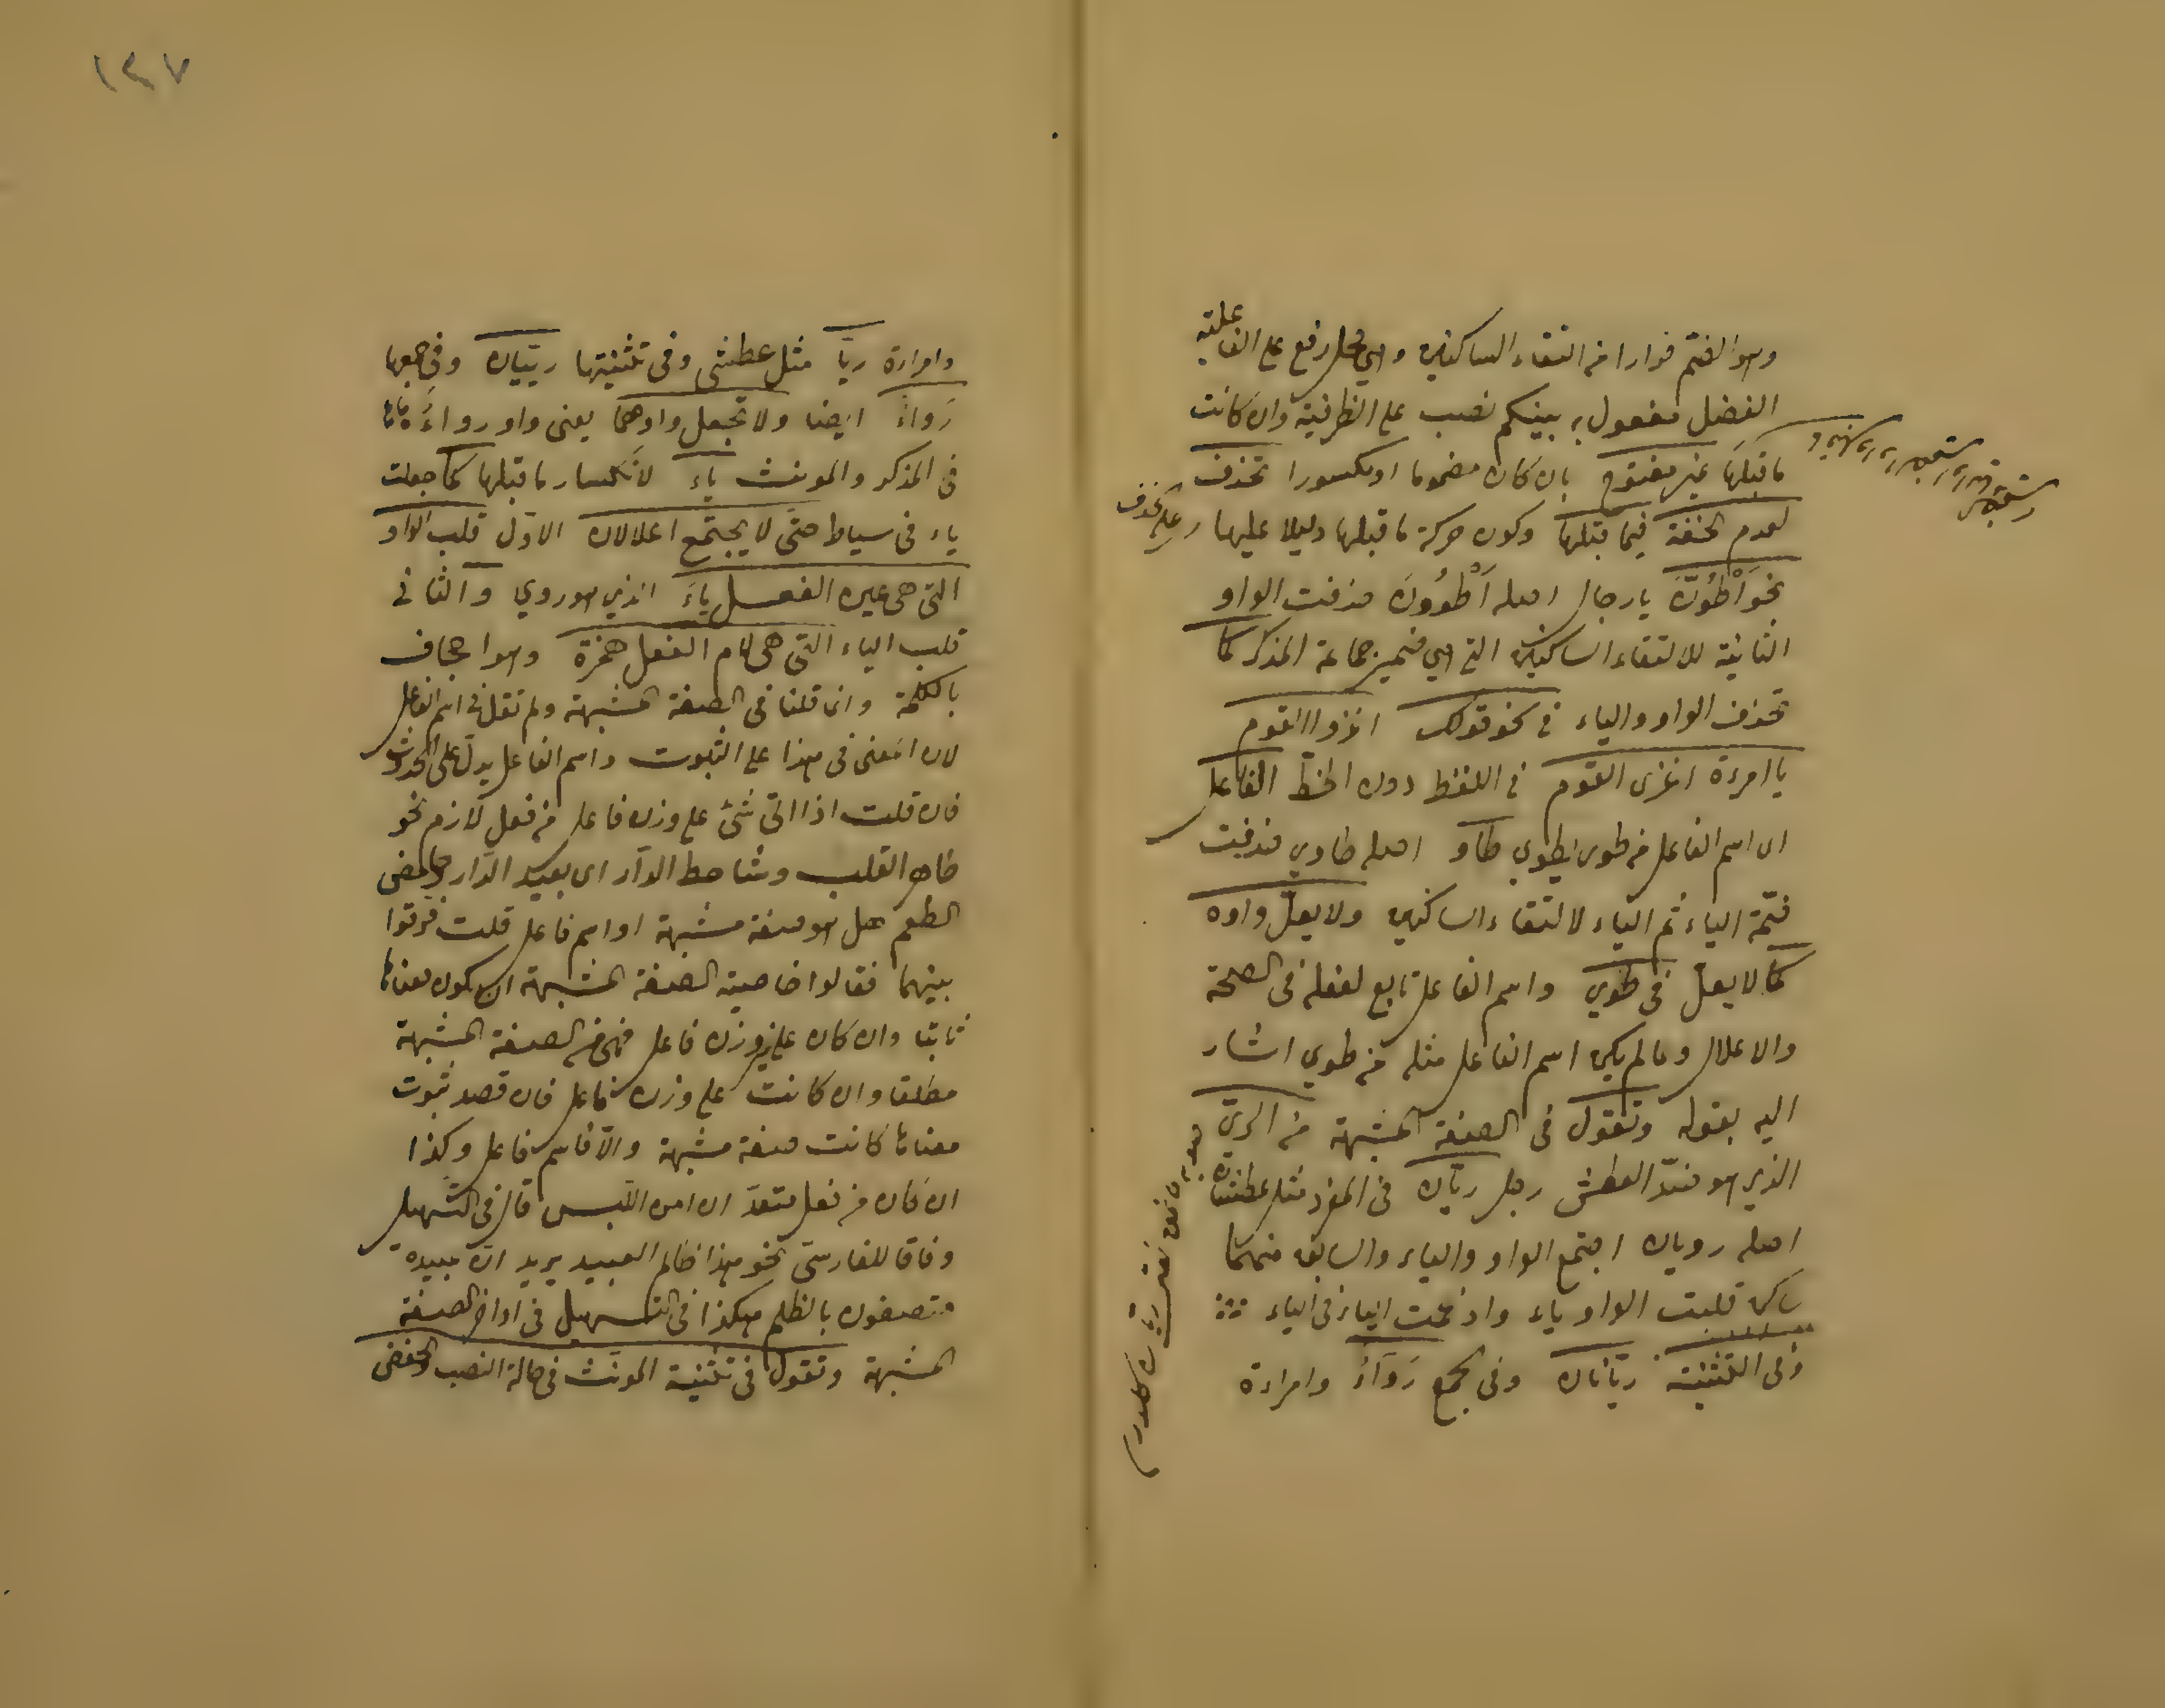 وهو الضم فرارا من التقاء الساكنين وهي محل رفع على الفاعلية
الفضل مفعول به بينكم نصب على الظرفية وان كانت
ما قبلها غير مفتوح بان كان مضموما او مكسورا تحذف
لعدم الخفة فيما قبلها وكون حركة ما قبلها دليلا عليها
نحو اَطْوُنَّ يا رجال اصله اَطْوُونَ حذفت الواو
الثانية لالتقاء الساكنين التي هي ضمير جماعة المذكر كما
تحذف الواو والياء في نحو قولك اغزوا القوم
يا امرءة اغزى القوم في اللفظ دون الخط الفاعل
اى اسم الفاعل من طوى يطوي طاو اصله طاوي حذفت
ضمة الياء ثم الياء لالتقاء الساكنين ولا يعلّ واوه
كما لا يعلّ في طوي واسم الفاعل تابع لفعله في الصحة
والاعلال ولما لم يكن اسم الفاعل مثله من طوي اشار
اليه بقوله وتقول في الصفة المشبهة من الريّ
الذي هو ضدّ العطش رجل ريّان في المفرد مثل عطشان
اصله رويان اجتمع الواو والياء والسابق منهما
ساكن قلبت الواو ياء وادغمت الياء في الياء
وفي التثنية ريّانان وفي الجمع رَوَاءٌ وامراءة
وامراءة ريّا مثل عطشى وفي تثنيتها ريّيان وفي جمعها
رَواءٌ ايضا ولا تجعل واوهما يعنى واو رواء
في المذكر والمونث ياء لانكسار ما قبلها كما جعلت
ياء في سياط حتّى لا يجتمع اعلالان الاوّل قلب الواو
التى هى عين الفعل ياءَ الذي هو روي والثاني
قلب الياء التى هى لام الفعل همزة وهو اجحاف
بالكلمة وانما قلنا في الصفة المشبهة ولم نقل في اسم الفاعل
لان المعنى في هذا على الثبوت واسم الفاعل يدلّ على الحدوث
فان قلت اذا اتى شئ على وزن فاعل من فعل لازم نحو
طاهر القلب وشاحط الدّار اى بعيد الدّار وحامض
الطعم هل هو صفة مشبهة او اسم فاعل قلت فرّقوا
بينهما فقالوا خاصية الصفة المشبهة ان يكون معناها
ثابتا وان كان على غير وزن فاعل فهى من الصفة المشبهة
مطلقا وان كانت على وزن فاعل فان قصد ثبوت
معناها كانت صفة مشبهة والّا فاسم فاعل وكذا
ان كان من فعل متعدّ ان امن اللّبس قال في التّسهيل
وفاقا للفارسىّ نحو هذا ظالم العبيد يريد انّ عبيده
متصفون بالظلم هكذا في التسهيل في اواخر الصفة
المشبهة وتقول في تثنية المونّث في حالة النصب والخفض
١٣٧